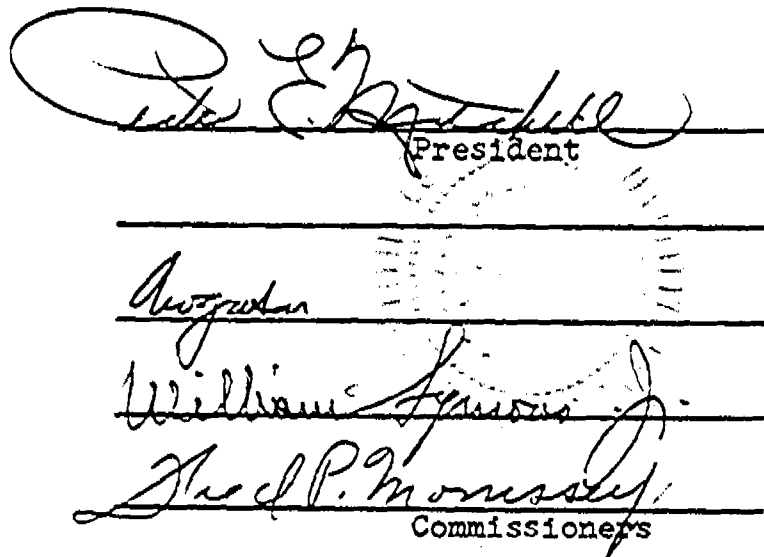 Peter E. Mitchell
President
William Symons Jr.
Fred P. Morrissey
Commissioners